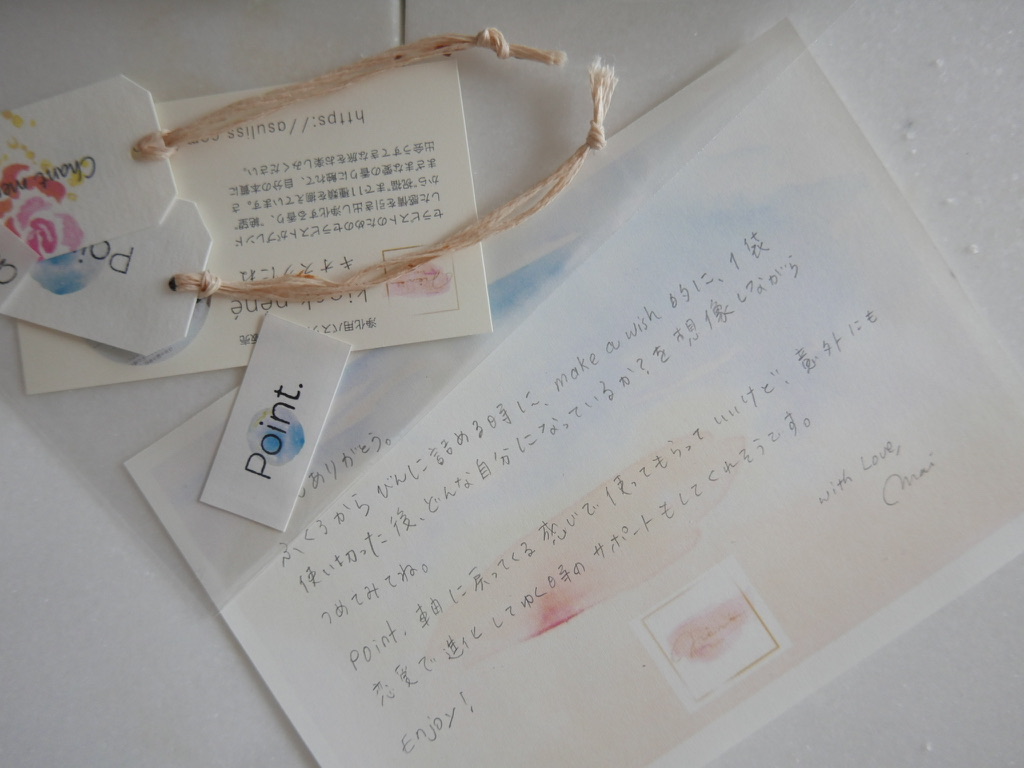 Chant
Point
https://asuliss.com
出会うすてきな旅をお楽しみください。
まざまな愛の香に触れて、自分の本質に
から"祝福"まで11種類を揃えています。さ
した感情を引き出し浄化する香り、"絶望"
セラピストのためのセラピストがブレンド
キオスクにね
kiosk nene
浄化用バス
販売
Point.
ありがとう。
ふくろから びんに詰める時に、make a wish 的に、1袋
使い切った後、どんな自分になっているか？を想像しながら
つめてみてね。
Point. 軸に戻ってくる感じで使ってもらっていいけど、意外にも
恋愛で進化してゆく時の サポートもしてくれそうです。
Enjoy!
with Love,
Mai